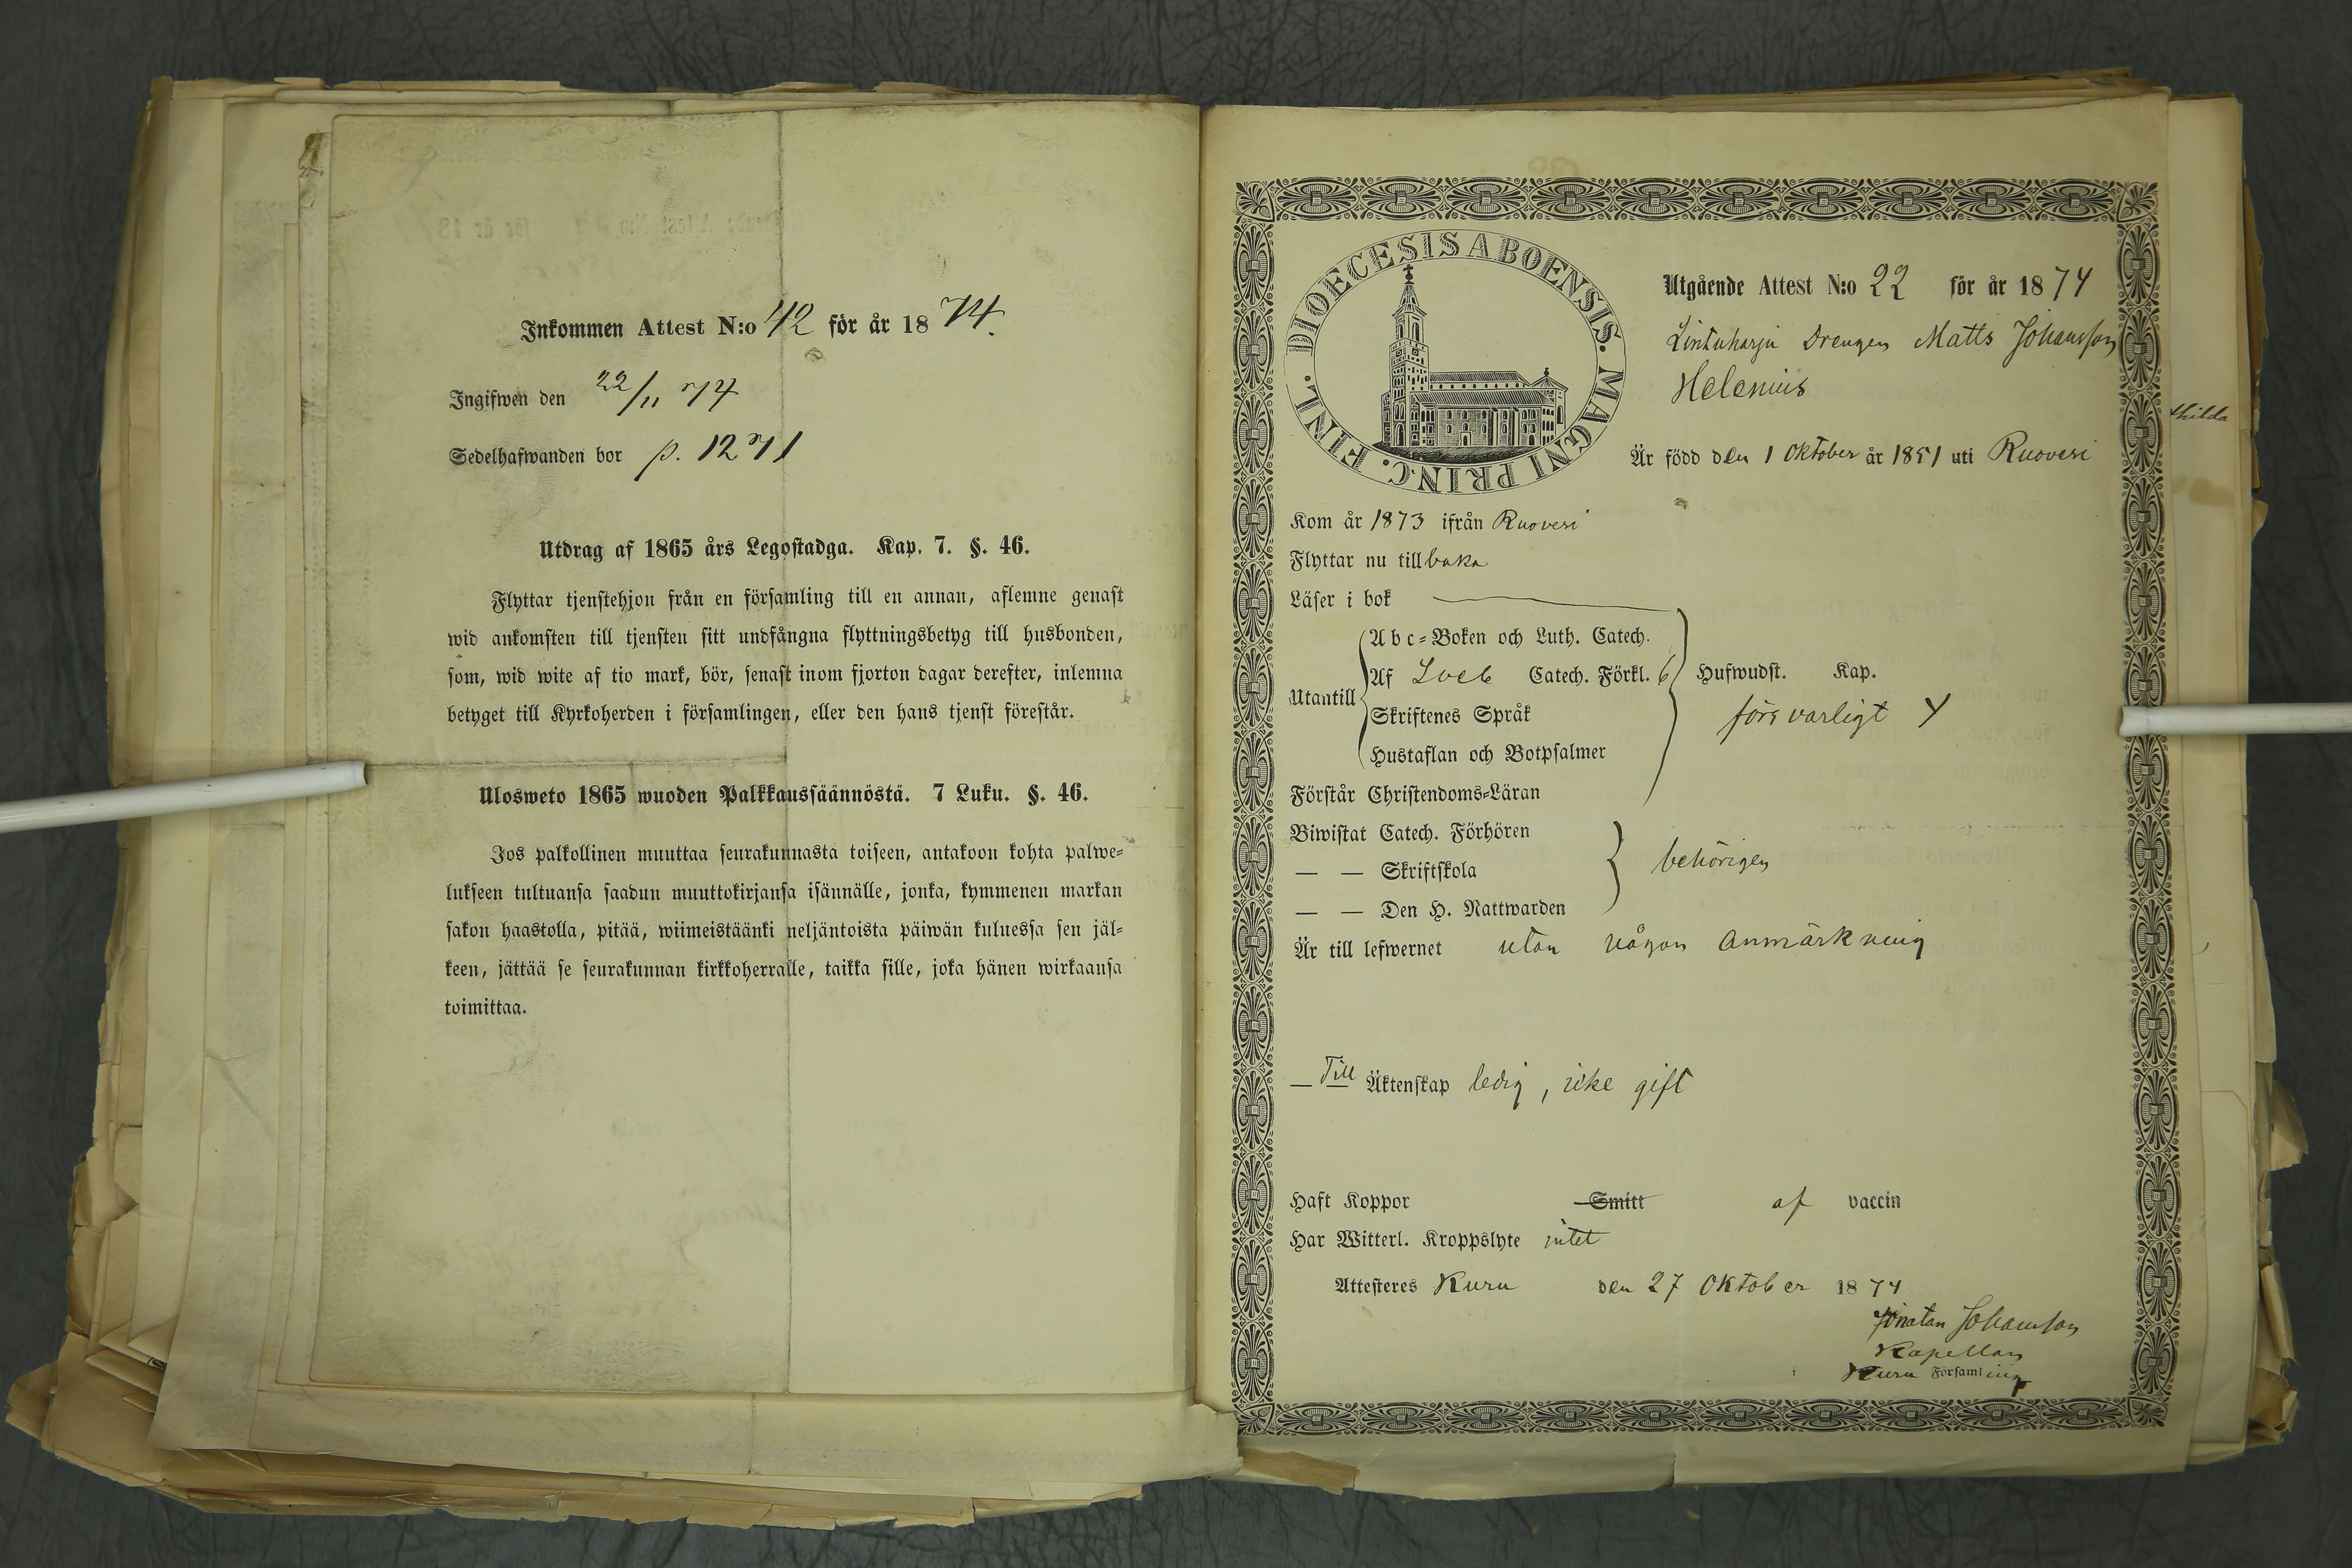 Inkommen Attest N:o 42 för år 1874.
Ingifwen den 22/11 74
Sedelhafwanden bor p. 1271
Utdrag af 1865 års Legostadga. Kap. 7. §. 46.
Flyttar tjenstehjon från en församling till en annan, aflemne genast
wid ankomsten till tjensten sitt undfångna flyttningsbetyg till husbonden,
som, wid wite af tio mark, bör, senast inom fjorton dagar derefter, inlemna
betyget till Kyrkoherden i församlingen, eller den hans tjenst förestår.
Ulosweto 1865 wuoden Palkkaussäännöstä. 7 Luku. §. 46.
Jos palkollinen muuttaa seurakunnasta toiseen, antakoon kohta palwe=
lukseen tultuansa saadun muuttokirjansa isännälle, jonka, kymmenen markan
sakon haastolla, pitää, wiimeistäänki neljäntoista päiwän kuluessa sen jäl=
keen, jättää se seurakunnan kirkkoherralle, taikka sille, joka hänen wirkaansa
toimittaa.
DIOECESIS ABOENSIS. MAGNI PRINC. FINL.
Utgående Attest N:o 22 för år 1874
Lintuharju Drengen Matts Johansson
Helenius
Är född den 1 Oktober år 1851 uti Ruovesi
Kom år 1873 ifrån Ruovesi
Flyttar nu tillbaka
Läser i bok
Utantill
Abc=Boken och Luth. Catech.
Af Sveb Catech. Förkl. 6 Hufwudst. Kap.
Skriftenes Språk försvarligt
Hustaflan och Botpsalmer
Förstår Christendoms=Läran
Biwistat Catech. Förhören
— — Skriftskola behörigen
— — Den H. Nattwarden
Är till lefwernet utan någon anmärkning
— Till Äktenskap ledig, icke gift
Haft Koppor Smitt af vaccin
Har Witterl. Kroppslyte intet
Attesteres Kuru den 27 Oktober 1874
Jonatan Johansson
Kapellan
i Kuru Församling
thilda